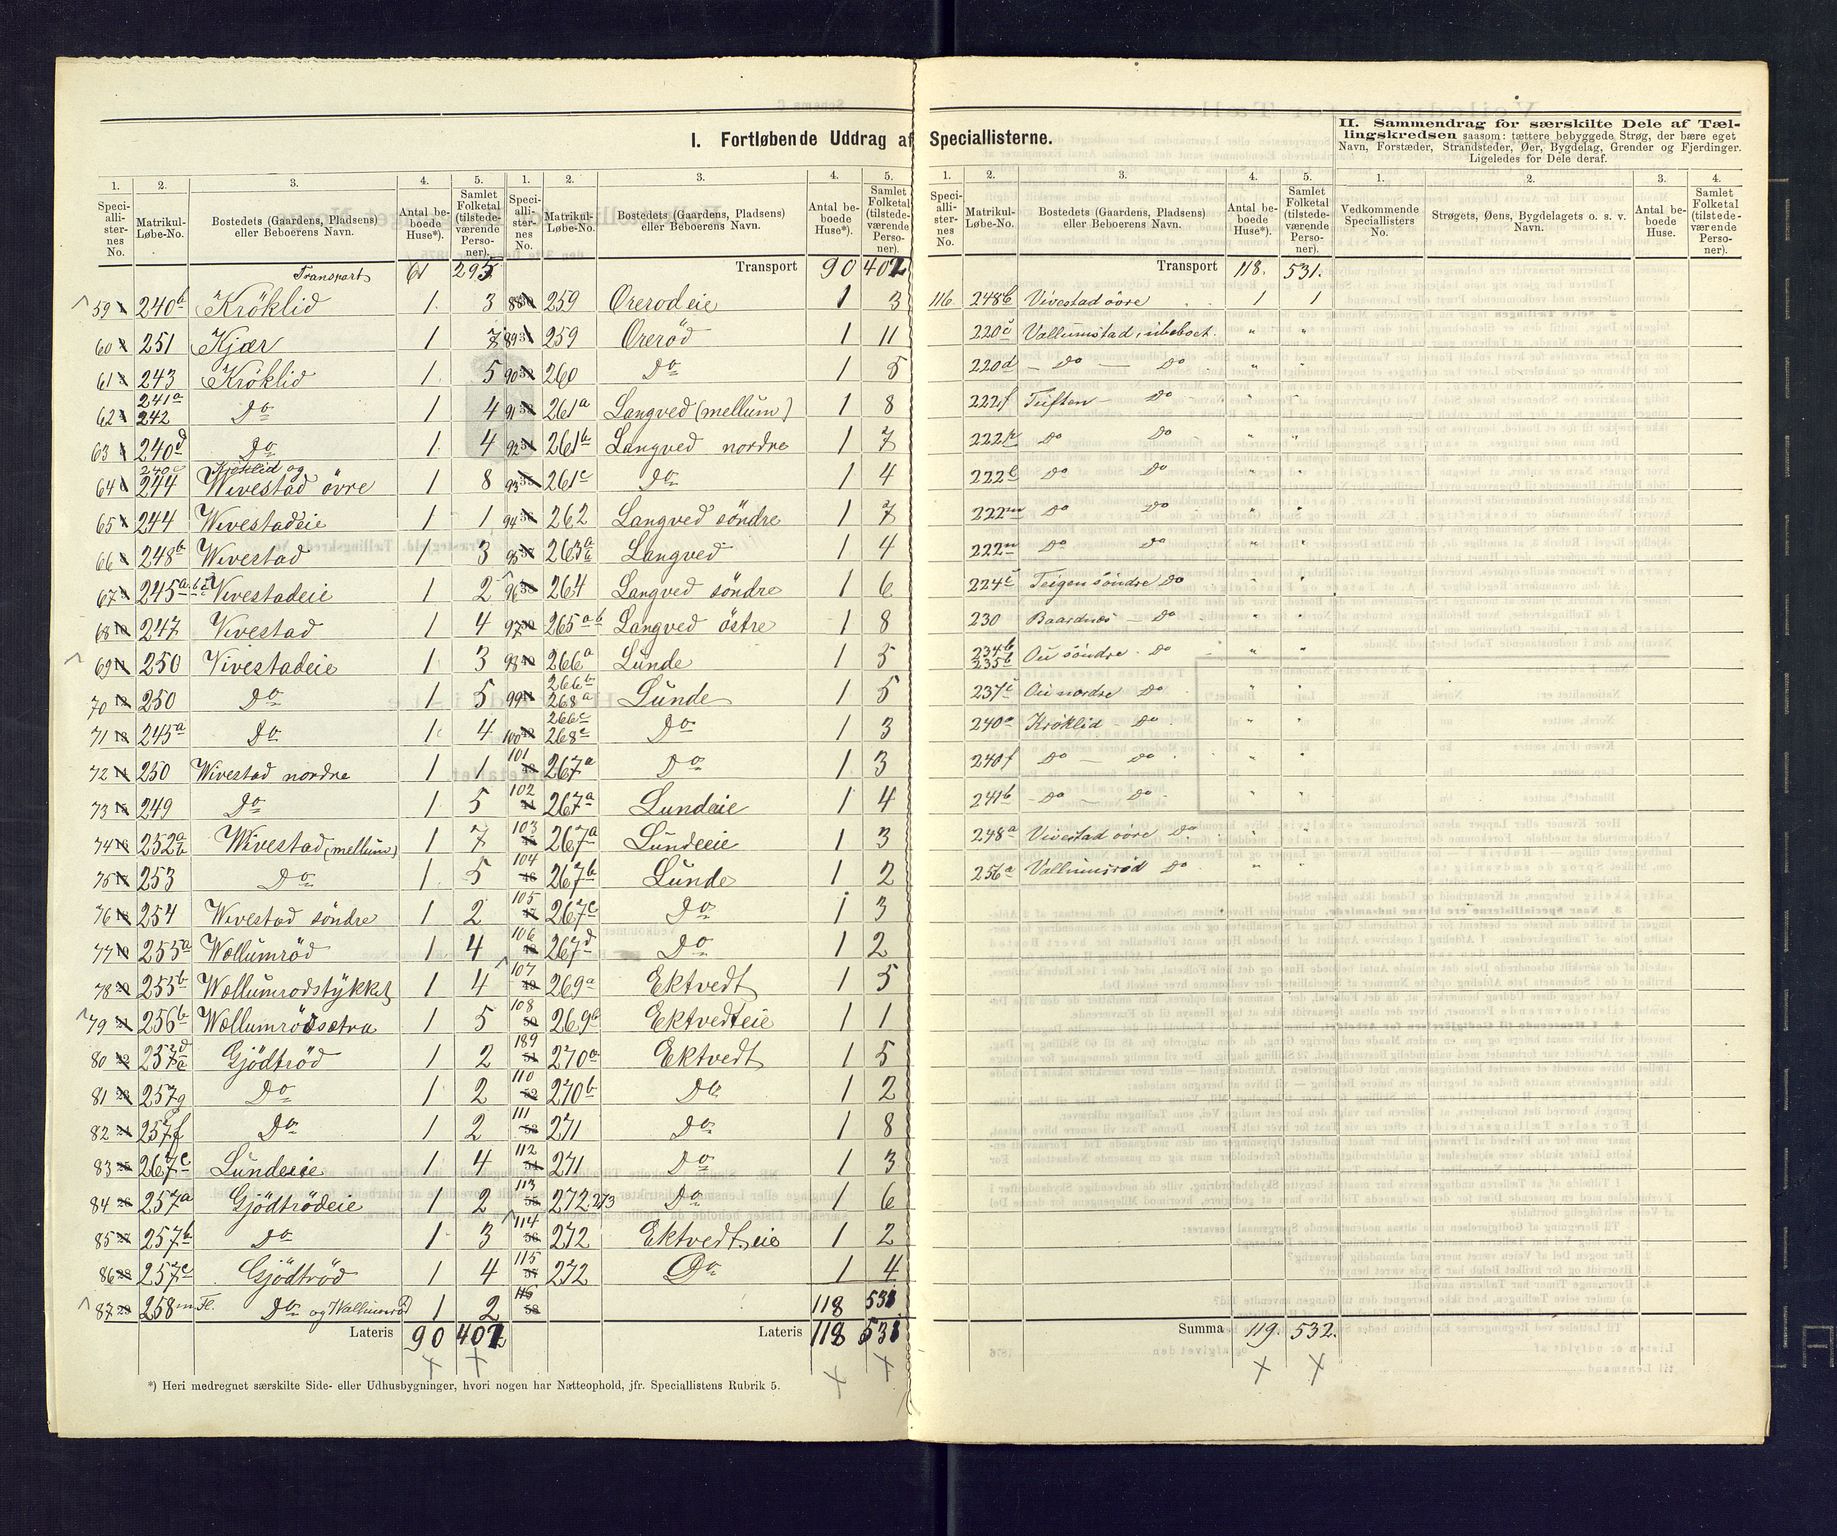 I. Fortløbende Uddrag af Speciallisterne.
1. 2. 3. 4. 5.
Speciallisternes No. Matrikul-Løbe-No. Bostedets (Gaardens, Pladsens) eller Beboerens Navn. Antal beboede Huse*). Samlet Folketal (tilstedeværende Personer).
Transport 61 295
59 240b Kröklid 1. 3
60 251 Kjær 1 7
61 243 Kröklid 1. 5
62 241a 242 Do 1 4
63 240d Do 1. 4
64 240c 244 Kröklid og Wivestad övre 1 8
65 244 Wivestadeie 1 1
66 248b Wivestad 1 3
67 245a Vivestadeie 1 2
68 247 Vivestad 1 4
69 250 Vivestadeie 1 3
70 250 Do 1 5
71 245a Do 1 4
72 250 Wivestad nordre 1 1
73 249 Do 1. 5
74 252a b Wivestad (mellum) 1 7
75 253 Do 1. 5
76 254 Wivestad söndre 1 2
77 255a Wællumröd 1 4
78 255b Wællumrodstykket 1 4
79 256b Wællumrödsætra 1 5
80 257d a Gjödtröd 1 2
81 257g Do 1 2
82 257f Do 1 2
83 267c Lundeeie 1 4
84 257a Gjödtrödeie 1 2
85 257b Do 1 3
86 257c Gjödtröd 1 4
87 258 m Fl. Do og Wallumröd 1 2
Lateris 90 402
*) Heri medregnet særskilte Side- eller Udhusbygninger, hvori nogen har Natteophold, jfr. Speciallistens Rubrik 5.
1. 2. 3. 4. 5.
Speciallisternes No. Matrikul-Løbe-No. Bostedets (Gaardens, Pladsens) eller Beboerens Navn. Antal beboede Huse*). Samlet Folketal (tilstedeværende Personer).
Transport 90 402
88 259 Orerodeie 1 3
89 259 Oreröd 1 11
90 260 Do 1 5
91 261a Langved (mellum) 1 8
92 261b Langved nordre 1 7
93 261c Do 1 4
94 262 Langved söndre 1 7
95 263a a Langved 1 4
96 264 Langved söndre 1 6
97 265a b Langved östre 1 8
98 266a Lunde 1 5
99 266b 268a Lunde 1 5
100 266c 268c Do 1 3
101 267a Do 1 3
102 267a Lundeie 1 4
103 267a Lundeeie 1 3
104 267b Lunde 1 2
105 267c Do 1 3
106 267d Do 1 2
107 269a Ektvedt 1 5
108 269b Ektvedteie 1 1
189 270a Ektvedt 1 5
110 270b Do 1 2
111 271 Do 1 8
112 271 Do 1 3
113 272, 273 Do 1 6
114 272 Ektvedteie 1 2
115 272 Do 1 4
116 118 531
Lateris 118 531
1. 2. 3. 4. 5.
Speciallisternes No. Matrikul-Løbe-No. Bostedets (Gaardens, Pladsens) eller Beboerens Navn. Antal beboede Huse*). Samlet Folketal (tilstedeværende Personer).
Transport 118. 531.
116. 248b Vivestad övre 1 1
220c Vallumstad, ubeboet. " "
220d — Do — Do " "
222f Tuften — Do " "
222k Do Do " "
222l Do Do " "
222m Do Do " "
222n Do Do " "
224c Teigen söndre Do " "
230 Baardnæs — Do " "
234b 235b Ou söndre. Do " "
237c Ou nordre Do " "
240a Kröklid — Do " "
240f Do — Do " "
241b — Do — Do " "
248a Vivestad övre Do " "
256a Vallumsröd Do " "
Summa 119. 532.
II. Sammendrag for særskilte Dele af Tællingskredsen saasom: tættere bebyggede Strøg, der bære eget Navn, Forstæder, Strandsteder, Øer, Bygdelag, Grender og Fjerdinger. Ligeledes for Dele deraf.
1. 2. 3. 4.
Vedkommende Speciallisters No. Strøgets, Øens, Bygdelagets o. s. v. Navn. Antal beboede Huse. Samlet Folketal (tilstedeværende Personer).